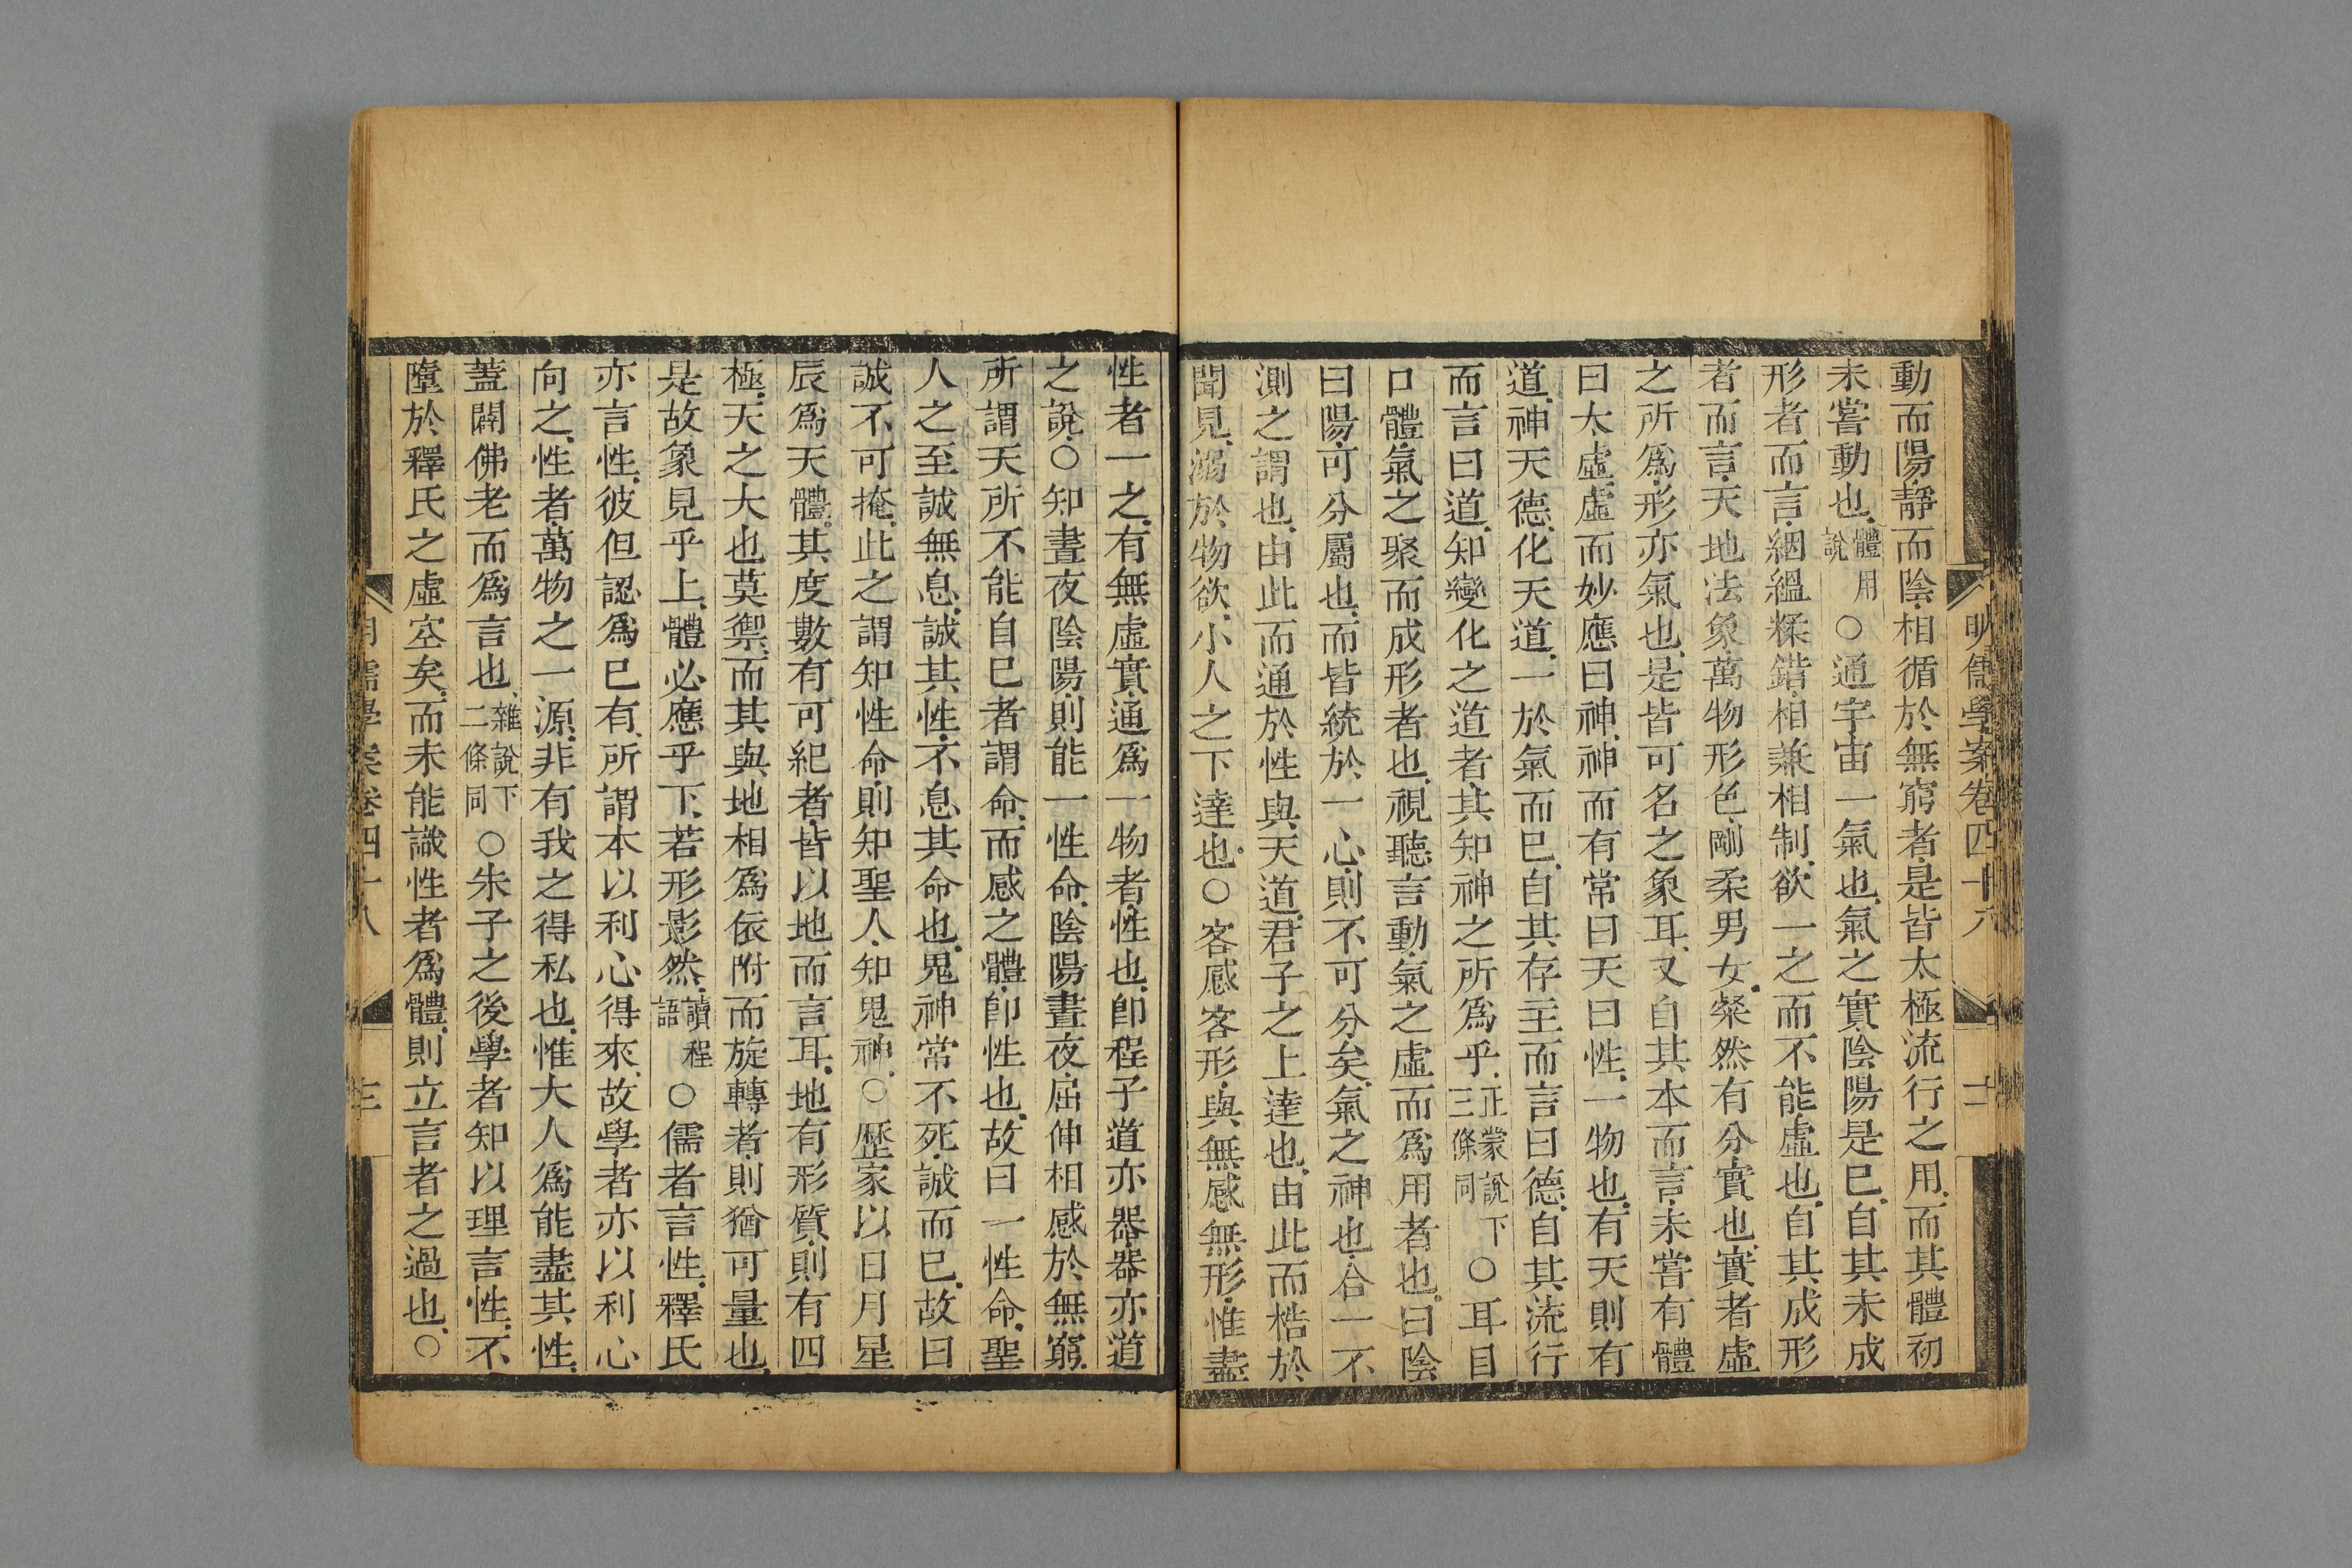 明儒學案卷四十六
十二
動而陽、靜而陰、相循於無窮者、是皆太極流行之用、而其體初
未嘗動也、體用說○通宇宙一氣也、氣之實、陰陽是巳、自其未成
形者而言、絪縕糅錯、相兼相制、欲一之而不能、虛也、自其成形
者而言、天地法象、萬物形色、剛柔男女、粲然有分、實也、實者虛
之所爲、形亦氣也、是皆可名之象耳、又自其本而言、未嘗有體
曰太虛、虛而妙應曰神、神而有常曰天曰性、一物也、有天則有
道、神天德、化天道、一於氣而巳、自其存主而言曰德、自其流行
而言曰道、知變化之道者、其知神之所爲乎、正蒙說下三條同○耳目
口體、氣之聚而成形者也、視聽言動、氣之虛而爲用者也、曰陰
曰陽、可分屬也、而皆統於一心、則不可分矣、氣之神也、合一不
測之謂也、由此而通於性與天道、君子之上達也、由此而梏於
聞見、溺於物欲、小人之下達也、○客感客形、與無感無形、惟盡
性者一之、有無虛實、通爲一物者、性也、卽程子道亦器、器亦道
之說、○知晝夜陰陽、則能一性命、陰陽晝夜、屈伸相感於無窮、
所謂天所不能自巳者謂命、而感之體、卽性也、故曰一性命、聖
人之至誠無息、誠其性、不息其命也、鬼神常不死、誠而巳、故曰
誠不可掩、此之謂知性命、則知聖人、知鬼神、○歷家以日月星
辰爲天體、其度數有可紀者、皆以地而言耳、地有形質、則有四
極、天之大也莫禦、而其與地相爲依附而旋轉者、則猶可量也、
是故象見乎上、體必應乎下、若形影然、讀程語○儒者言性、釋氏
亦言性、彼但認爲巳有、所謂本以利心得來、故學者亦以利心
向之、性者、萬物之一源、非有我之得私也、惟大人爲能盡其性、
蓋闢佛老而爲言也、雜說下二條同○朱子之後學者知以理言性、不
墮於釋氏之虛空矣、而未能識性者爲體、則立言者之過也、○
明儒學案卷四十八
三